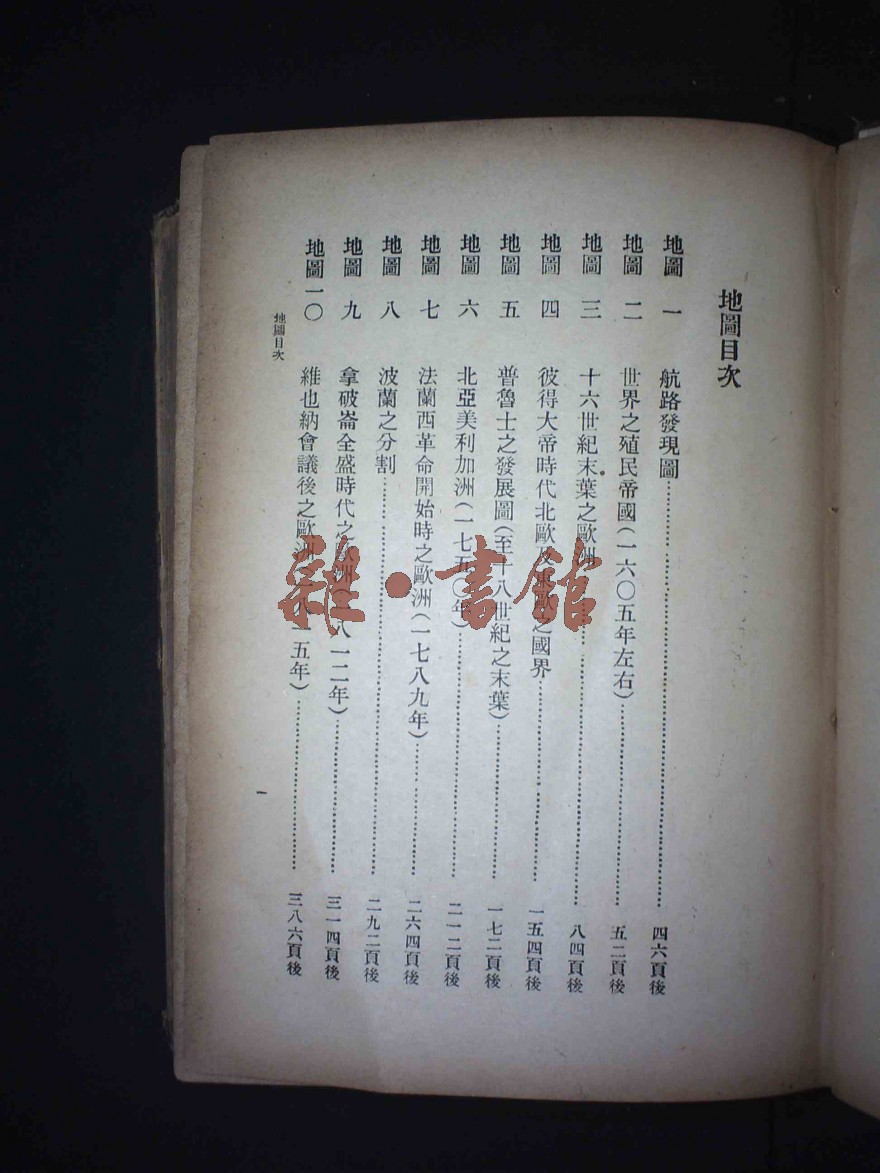 地圖目次
地圖一 航路發現圖 四六頁後
地圖二 世界之殖民帝國(一六〇五年左右) 五二頁後
地圖三 十六世紀末葉之歐洲 八四頁後
地圖四 彼得大帝時代北歐及東歐之國界 一五四頁後
地圖五 普魯士之發展圖(至十八世紀之末葉) 一七二頁後
地圖六 北亞美利加洲(一七五〇年) 二一二頁後
地圖七 法蘭西革命開始時之歐洲(一七八九年) 二六四頁後
地圖八 波蘭之分割 二九二頁後
地圖九 拿破崙全盛時代之歐洲(一八一二年) 三一四頁後
地圖一〇 維也納會議後之歐洲(一八一五年) 三八六頁後
地圖目次
一
雜·書館